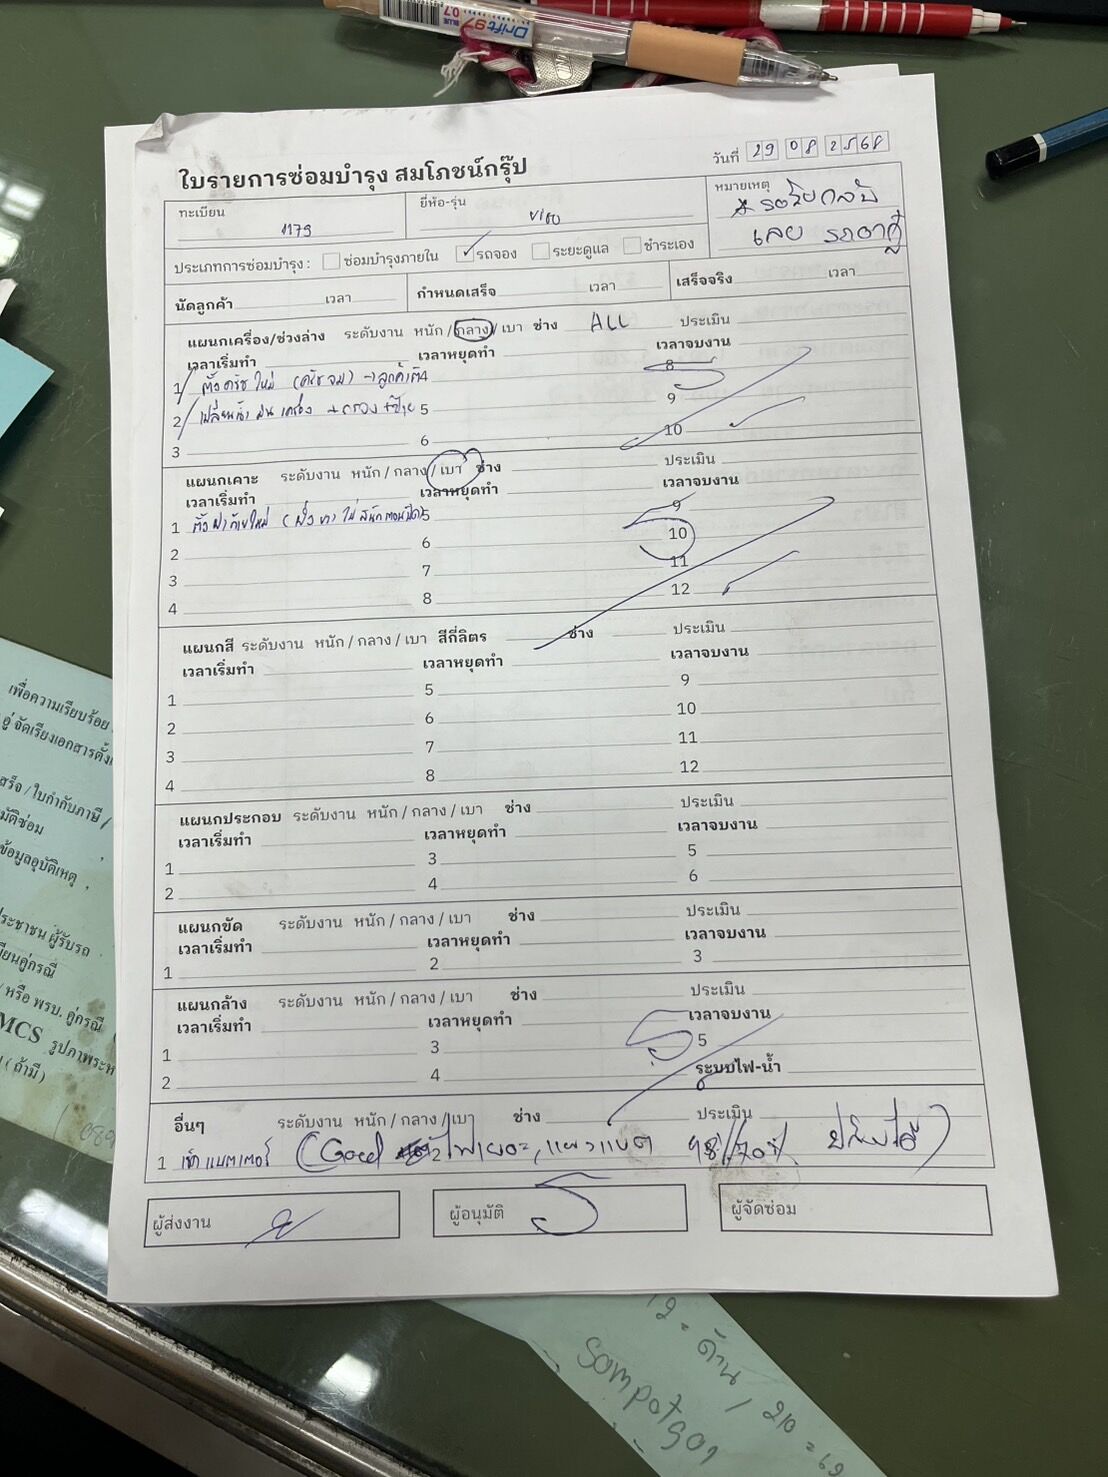 Drift 97
BLUE 0.7
ใบรายการซ่อมบำรุง สมโภชน์กรุ๊ป
วันที่ 29 08 2568
ทะเบียน 1179
ยี่ห้อ-รุ่น Vigo
หมายเหตุ
เลย
ประเภทการซ่อมบำรุง : ซ่อมบำรุงภายใน ✓ รถจอง ระยะดูแล ชำระเอง
นัดลูกค้า เวลา กำหนดเสร็จ เวลา เสร็จจริง เวลา
แผนกเครื่อง/ช่วงล่าง ระดับงาน หนัก / กลาง / เบา ช่าง ALL ประเมิน
เวลาเริ่มทำ เวลาหยุดทำ เวลาจบงาน
1 ตั้งครัชใหม่ (ครัชจม) → ลูกค้าติ 4 8
2 เปลี่ยนถ่ายน้ำมันเครื่อง + กรอง 5 9
3 6 10
แผนกเคาะ ระดับงาน หนัก / กลาง / เบา ช่าง ประเมิน
เวลาเริ่มทำ เวลาหยุดทำ เวลาจบงาน
1 ตั้งฝาท้ายใหม่ 5 9
2 6 10
3 7 11
4 8 12
แผนกสี ระดับงาน หนัก / กลาง / เบา สีกี่ลิตร ช่าง ประเมิน
เวลาเริ่มทำ เวลาหยุดทำ เวลาจบงาน
1 5 9
2 6 10
3 7 11
4 8 12
แผนกประกอบ ระดับงาน หนัก / กลาง / เบา ช่าง ประเมิน
เวลาเริ่มทำ เวลาหยุดทำ เวลาจบงาน
1 3 5
2 4 6
แผนกขัด ระดับงาน หนัก / กลาง / เบา ช่าง ประเมิน
เวลาเริ่มทำ เวลาหยุดทำ เวลาจบงาน
1 2 3
แผนกล้าง ระดับงาน หนัก / กลาง / เบา ช่าง ประเมิน
เวลาเริ่มทำ เวลาหยุดทำ เวลาจบงาน
1 3 5
2 4 ระบบไฟ-น้ำ
อื่นๆ ระดับงาน หนัก / กลาง / เบา ช่าง ประเมิน
1 เช็คแบตเตอร์รี่ (Good 70%
ผู้ส่งงาน ผู้อนุมัติ ผู้จัดซ่อม
เพื่อความเรียบร้อย
อู่ จัดเรียงเอกสารตั้ง
สร็จ / ใบกำกับภาษี /
มัติซ่อม
ข้อมูลอุบัติเหตุ
ประชาชน ผู้รับรถ
เบียนคู่กรณี
/ หรือ พรบ. คู่กรณี
MCS รูปภาพระห
(ถ้ามี)
12 = ด้าน / 210 = 69